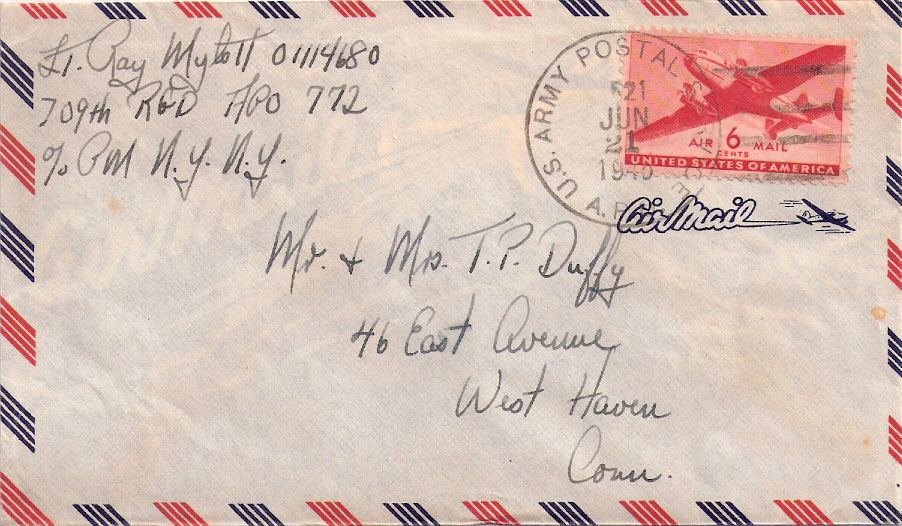 Lt. Ray Mylott 01114680
709th RGD APO 772
c/o PM N.Y. N.Y.
U.S. ARMY POSTAL SERVICE
A.P.
JUN
21
1945
AIR 6 MAIL
CENTS
UNITED STATES OF AMERICA
Air Mail
Mr. & Mrs. T.P. Duffy
46 East Avenue
West Haven
Conn.